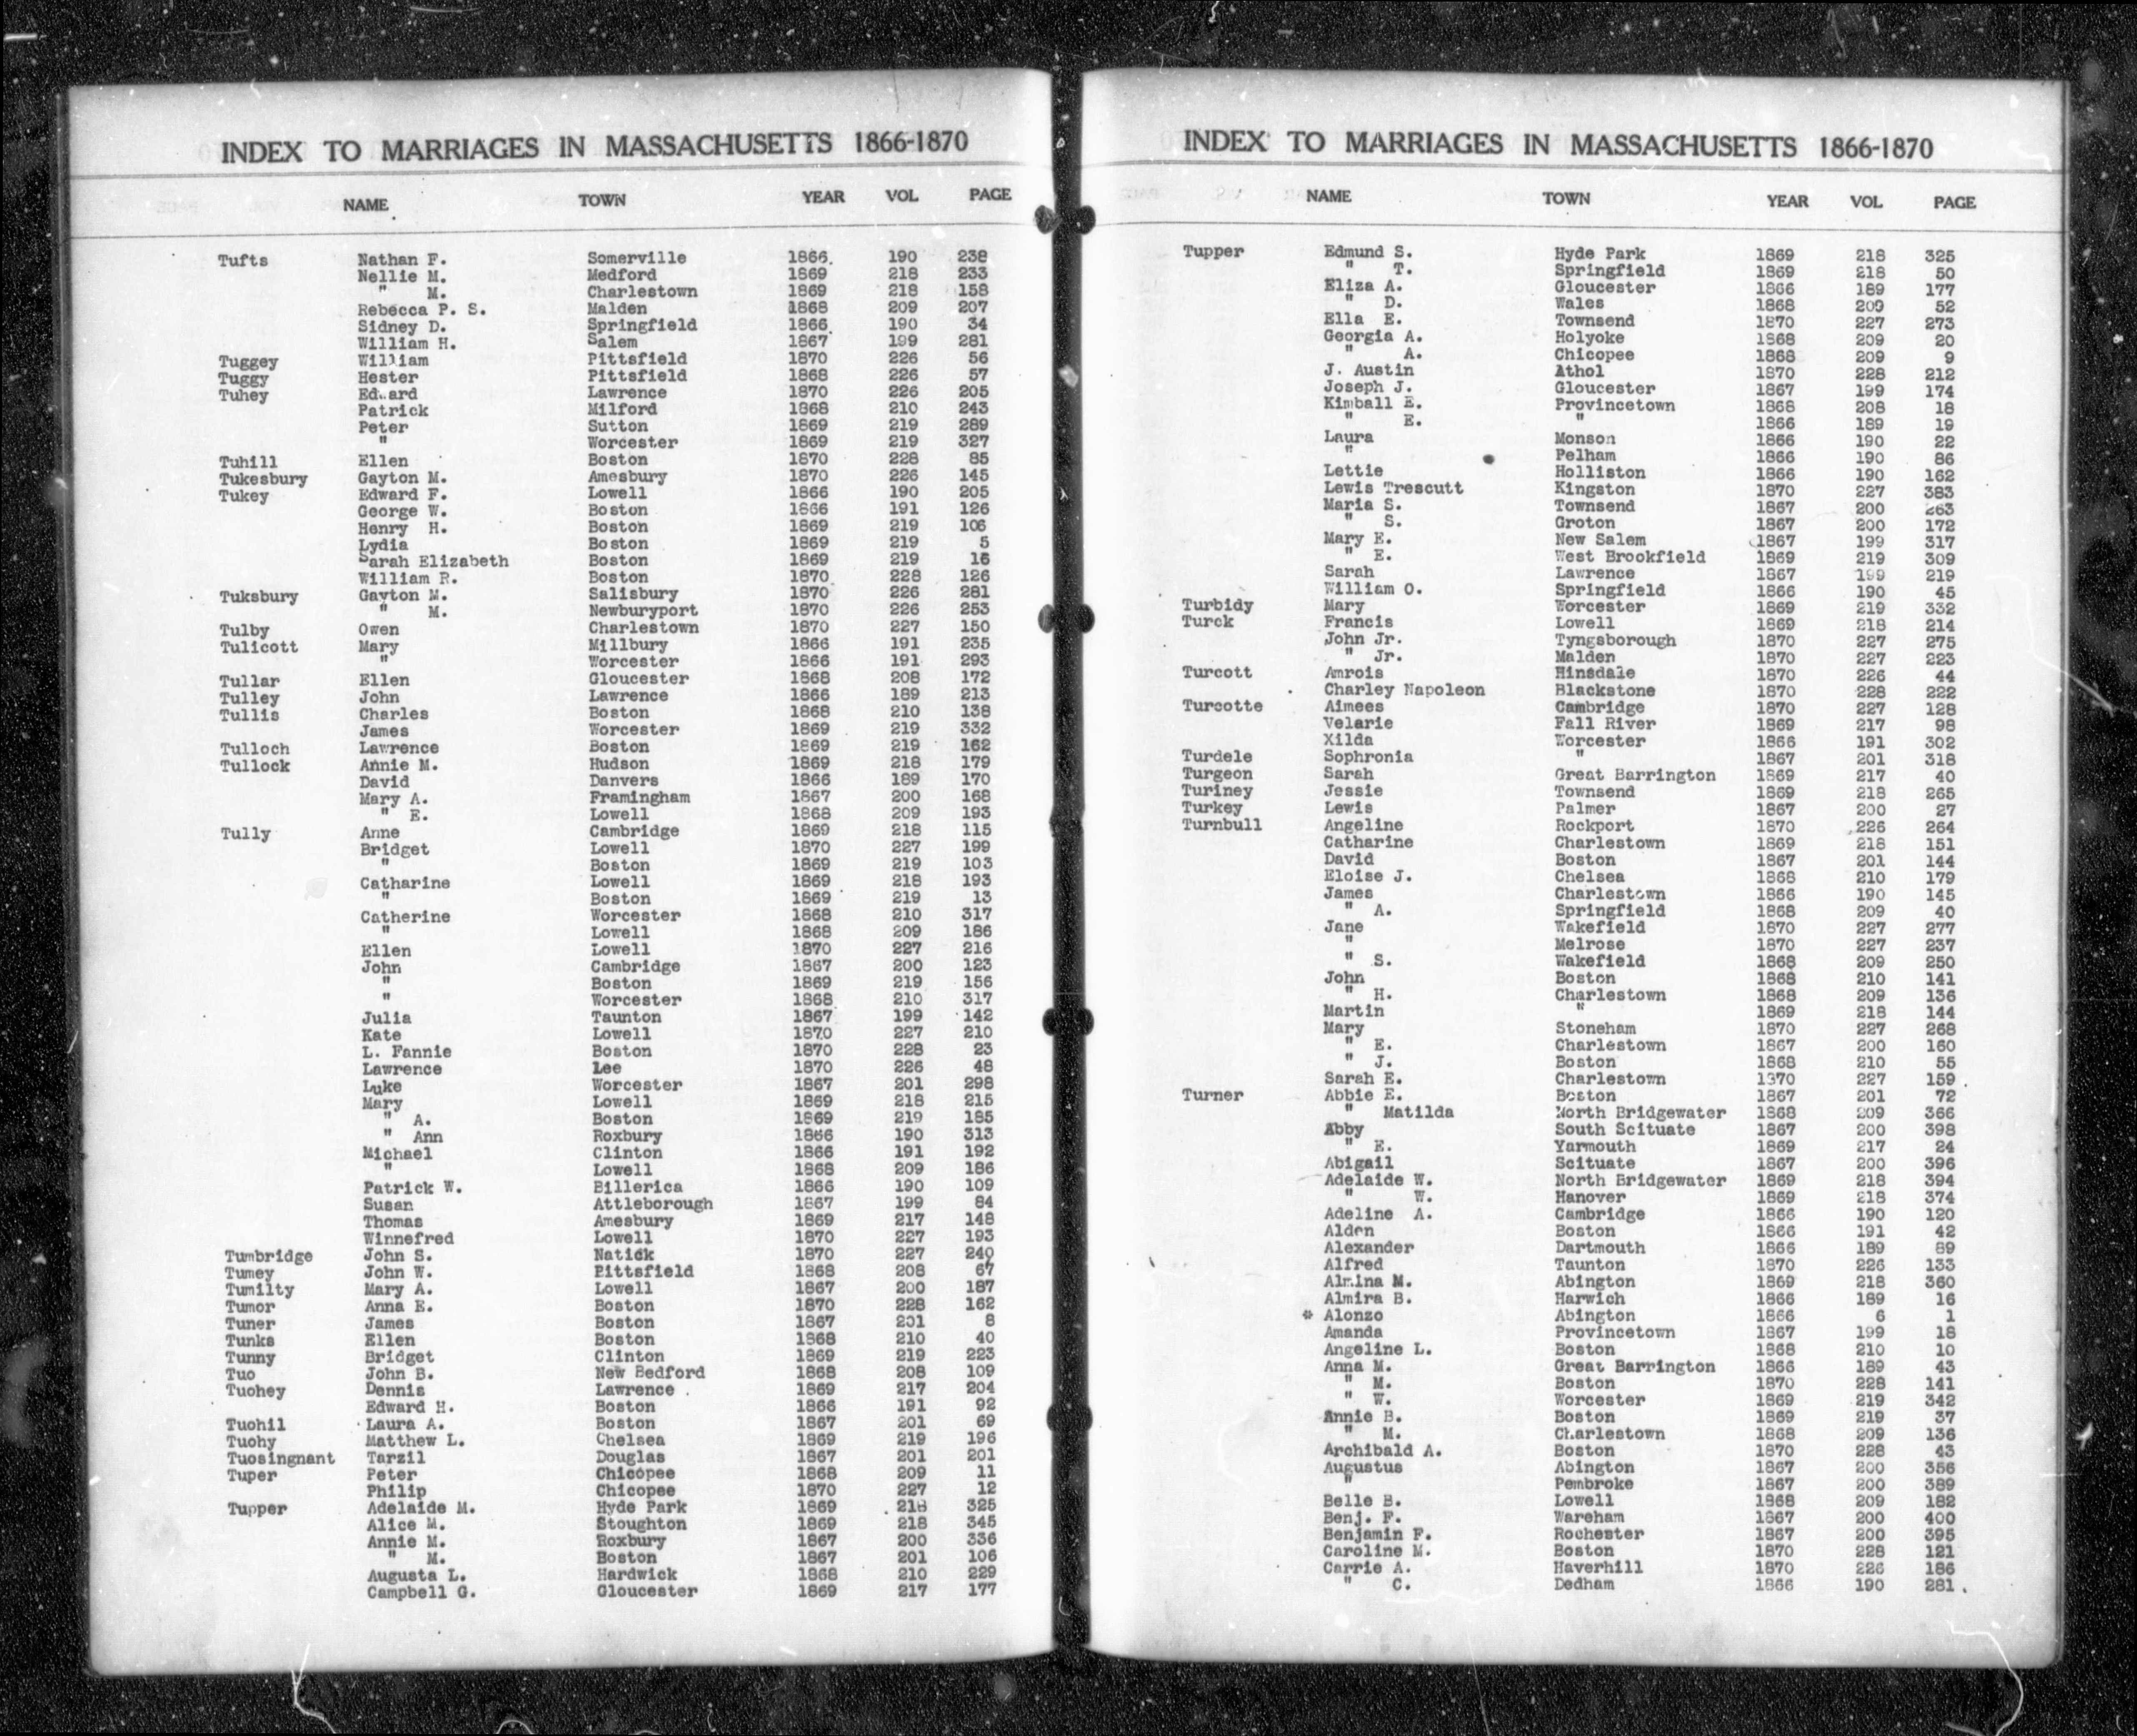 INDEX TO MARRIAGES IN MASSACHUSETTS 1866-1870
NAME TOWN YEAR VOL PAGE
Tufts Nathan F. Somerville 1866 190 238
Nellie M. Medford 1869 218 233
" M. Charlestown 1869 218 158
Rebecca P. S. Malden 1868 209 207
Sidney D. Springfield 1866 190 34
William H. Salem 1867 199 281
Tuggey William Pittsfield 1870 226 56
Tuggy Hester Pittsfield 1868 226 57
Tuhey Edward Lawrence 1870 226 205
Patrick Milford 1868 210 243
Peter Sutton 1869 219 289
" Worcester 1869 219 327
Tuhill Ellen Boston 1870 228 85
Tukesbury Gayton M. Amesbury 1870 226 145
Tukey Edward F. Lowell 1866 190 205
George W. Boston 1866 191 126
Henry H. Boston 1869 219 106
Lydia Boston 1869 219 5
Sarah Elizabeth Boston 1869 219 16
William R. Boston 1870 228 126
Tuksbury Gayton M. Salisbury 1870 226 281
" M. Newburyport 1870 226 253
Tulby Owen Charlestown 1870 227 150
Tulicott Mary Millbury 1866 191 235
" Worcester 1866 191 293
Tullar Ellen Gloucester 1868 208 172
Tulley John Lawrence 1866 189 213
Tullis Charles Boston 1868 210 138
James Worcester 1869 219 332
Tulloch Lawrence Boston 1869 219 162
Tullock Annie M. Hudson 1869 218 179
David Danvers 1866 189 170
Mary A. Framingham 1867 200 168
" E. Lowell 1868 209 193
Tully Anne Cambridge 1869 218 115
Bridget Lowell 1870 227 199
" Boston 1869 219 103
Catharine Lowell 1869 218 193
" Boston 1869 219 13
Catherine Worcester 1868 210 317
" Lowell 1868 209 186
Ellen Lowell 1870 227 216
John Cambridge 1867 200 123
" Boston 1869 219 156
" Worcester 1868 210 317
Julia Taunton 1867 199 142
Kate Lowell 1870 227 210
L. Fannie Boston 1870 228 23
Lawrence Lee 1870 226 48
Luke Worcester 1867 201 298
Mary Lowell 1869 218 215
" A. Boston 1869 219 185
" Ann Roxbury 1866 190 313
Michael Clinton 1866 191 192
" Lowell 1868 209 186
Patrick W. Billerica 1866 190 109
Susan Attleborough 1867 199 84
Thomas Amesbury 1869 217 148
Winnefred Lowell 1870 227 193
Tumbridge John S. Natick 1870 227 240
Tumey John W. Pittsfield 1868 208 67
Tumilty Mary A. Lowell 1867 200 187
Tumor Anna E. Boston 1870 228 162
Tuner James Boston 1867 201 8
Tunks Ellen Boston 1868 210 40
Tunny Bridget Clinton 1869 219 223
Tuo John B. New Bedford 1868 208 109
Tuohey Dennis Lawrence 1869 217 204
Edward H. Boston 1866 191 92
Tuohil Laura A. Boston 1867 201 69
Tuohy Matthew L. Chelsea 1869 219 196
Tuosingnant Tarzil Douglas 1867 201 201
Tuper Peter Chicopee 1868 209 11
Philip Chicopee 1870 227 12
Tupper Adelaide M. Hyde Park 1869 218 325
Alice M. Stoughton 1869 218 345
Annie M. Roxbury 1867 200 336
" M. Boston 1867 201 106
Augusta L. Hardwick 1868 210 229
Campbell G. Gloucester 1869 217 177
INDEX TO MARRIAGES IN MASSACHUSETTS 1866-1870
NAME TOWN YEAR VOL PAGE
Tupper Edmund S. Hyde Park 1869 218 325
" T. Springfield 1869 218 50
Eliza A. Gloucester 1866 189 177
" D. Wales 1868 209 52
Ella E. Townsend 1870 227 273
Georgia A. Holyoke 1868 209 20
" A. Chicopee 1868 209 9
J. Austin Athol 1870 228 212
Joseph J. Gloucester 1867 199 174
Kimball E. Provincetown 1868 208 18
" E. " 1866 189 19
Laura Monson 1866 190 22
" Pelham 1866 190 86
Lettie Holliston 1866 190 162
Lewis Trescutt Kingston 1870 227 383
Maria S. Townsend 1867 200 263
" S. Groton 1867 200 172
Mary E. New Salem 1867 199 317
" E. West Brookfield 1869 219 309
Sarah Lawrence 1867 199 219
William O. Springfield 1866 190 45
Turbidy Mary Worcester 1869 219 332
Turck Francis Lowell 1869 218 214
John Jr. Tyngsborough 1870 227 275
" Jr. Malden 1870 227 223
Turcott Amrois Hinsdale 1870 226 44
Charley Napoleon Blackstone 1870 228 222
Turcotte Aimees Cambridge 1870 227 128
Velarie Fall River 1869 217 98
Xilda Worcester 1866 191 302
Turdele Sophronia " 1867 201 318
Turgeon Sarah Great Barrington 1869 217 40
Turiney Jessie Townsend 1869 218 265
Turkey Lewis Palmer 1867 200 27
Turnbull Angeline Rockport 1870 226 264
Catharine Charlestown 1869 218 151
David Boston 1867 201 144
Eloise J. Chelsea 1868 210 179
James Charlestown 1866 190 145
" A. Springfield 1868 209 40
Jane Wakefield 1870 227 277
" Melrose 1870 227 237
" S. Wakefield 1868 209 250
John Boston 1868 210 141
" H. Charlestown 1868 209 136
Martin " 1869 218 144
Mary Stoneham 1870 227 268
" E. Charlestown 1867 200 160
" J. Boston 1868 210 55
Sarah E. Charlestown 1870 227 159
Turner Abbie E. Boston 1867 201 72
" Matilda North Bridgewater 1868 209 366
Abby South Scituate 1867 200 398
" E. Yarmouth 1869 217 24
Abigail Scituate 1867 200 396
Adelaide W. North Bridgewater 1869 218 394
" W. Hanover 1869 218 374
Adeline A. Cambridge 1866 190 120
Alden Boston 1866 191 42
Alexander Dartmouth 1866 189 89
Alfred Taunton 1870 226 133
Almina M. Abington 1869 218 360
Almira B. Harwich 1866 189 16
* Alonzo Abington 1866 6 1
Amanda Provincetown 1867 199 18
Angeline L. Boston 1868 210 10
Anna M. Great Barrington 1866 189 43
" M. Boston 1870 228 141
" W. Worcester 1869 219 342
Annie B. Boston 1869 219 37
" M. Charlestown 1868 209 136
Archibald A. Boston 1870 228 43
Augustus Abington 1867 200 356
" Pembroke 1867 200 389
Belle B. Lowell 1868 209 182
Benj. F. Wareham 1867 200 400
Benjamin F. Rochester 1867 200 395
Caroline M. Boston 1870 228 121
Carrie A. Haverhill 1870 226 186
" C. Dedham 1866 190 281